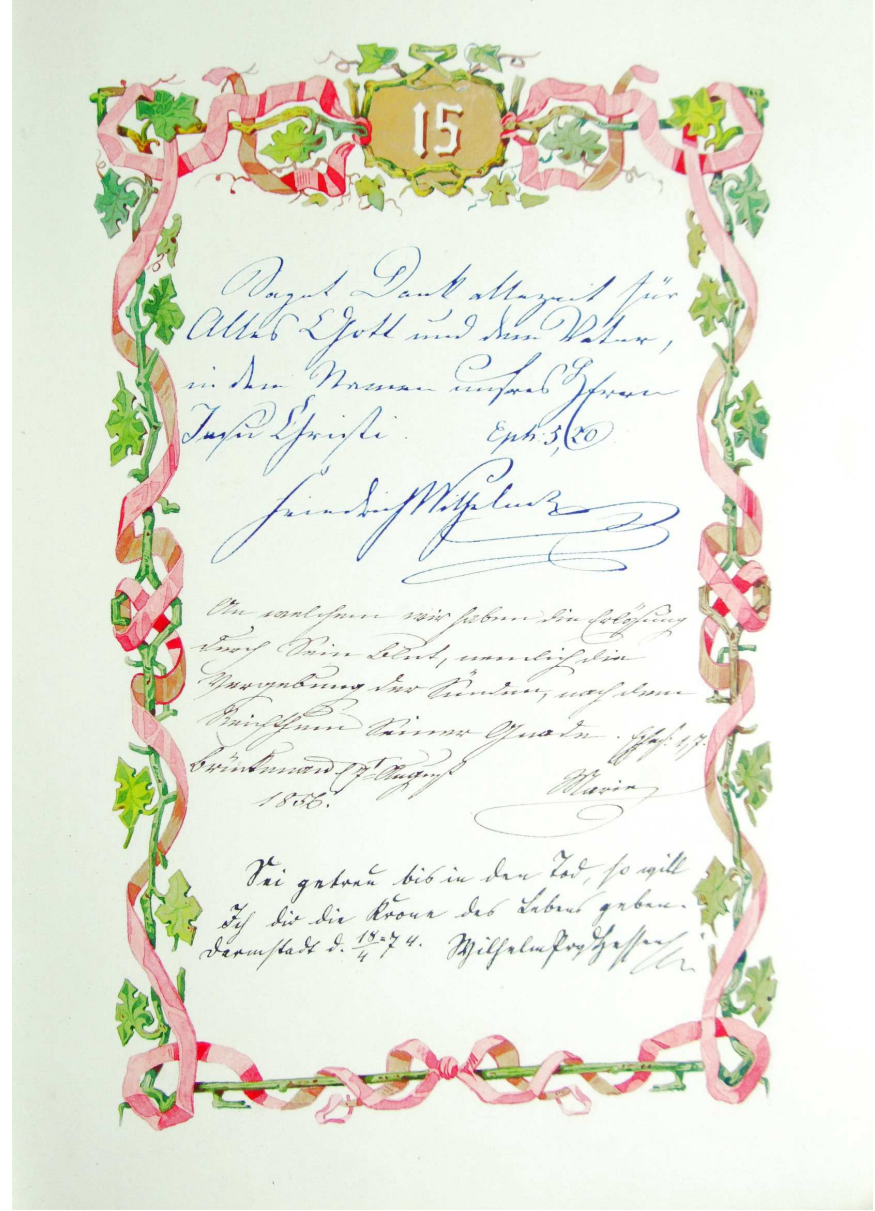 15
Saget Dank allezeit für
Alles Gott und dem Vater,
in dem Namen unsres Herrn
Jesu Christi. Eph: 5, 20
Friedrich Wilhelm
An welchem wir haben die Erlösung
durch Sein Blut, nemlich die
Vergebung der Sünden, nach dem
Reichthum Seiner Gnade. Ephes: 1, 7.
Brückenau August
1856. Marie
Sei getreu bis in den Tod, so will
Ich dir die Krone des Lebens geben.
Darmstadt d. 18/4 74. Wilhelm Prz Hessen